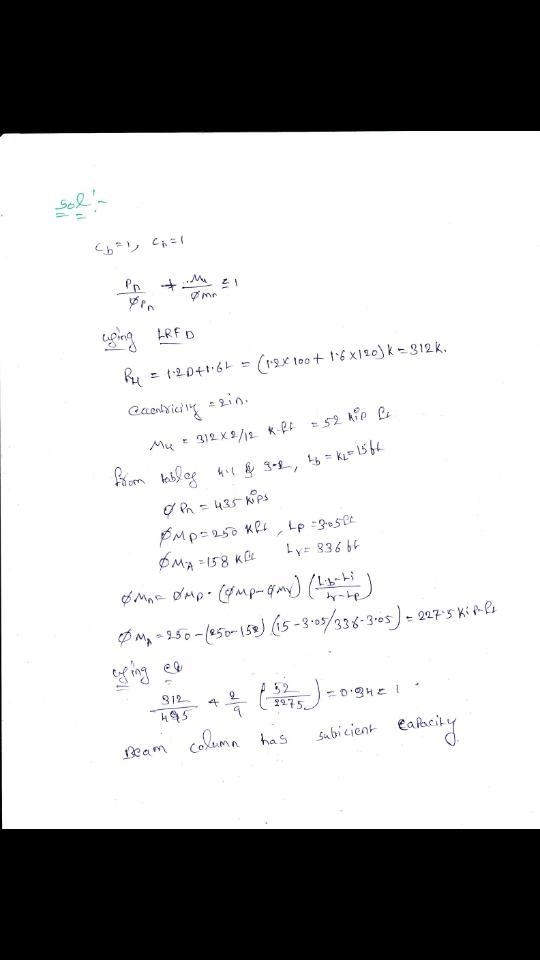 Sol:-
Cb=1, Cb=1
Pn/ØPn + Mu/ØMn ≤ 1
using LRFD
Pu = 1.2D+1.6L = (1.2×100+1.6×120)k = 312k.
Eccentricity = 2in.
Mu = 312×2/12 k-ft = 52 kip ft
from tables 4.1 & 3-2, Lb = KL = 15ft
ØPn = 435 kips
ØMp = 250 kft, Lp = 3.05ft
ØMA = 158 kft Lr = 336 ft
ØMn = ØMp - (ØMp-ØMr) (Lb-Li/Lr-Lp)
ØMn = 250-(250-158) (15-3.05/336-3.05) = 227.5 kip-ft
using
312/495 + 2/9 (52/2275) = 0.94 ≤ 1
Beam column has subicient capacity